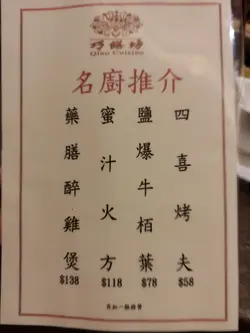 巧饍坊
Qiao Cuisine
名廚推介
四喜烤夫
$58
鹽爆牛栢葉
$78
蜜汁火方
$118
藥膳醉雞煲
$138
另加一服務費